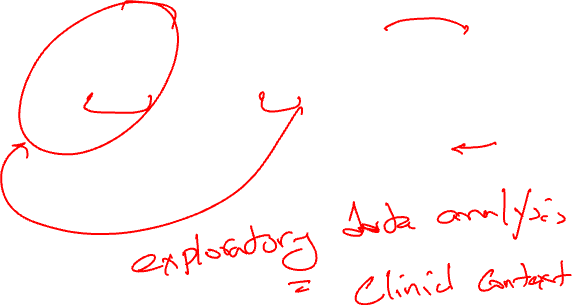 exploratory data analysis
Clinicl Context